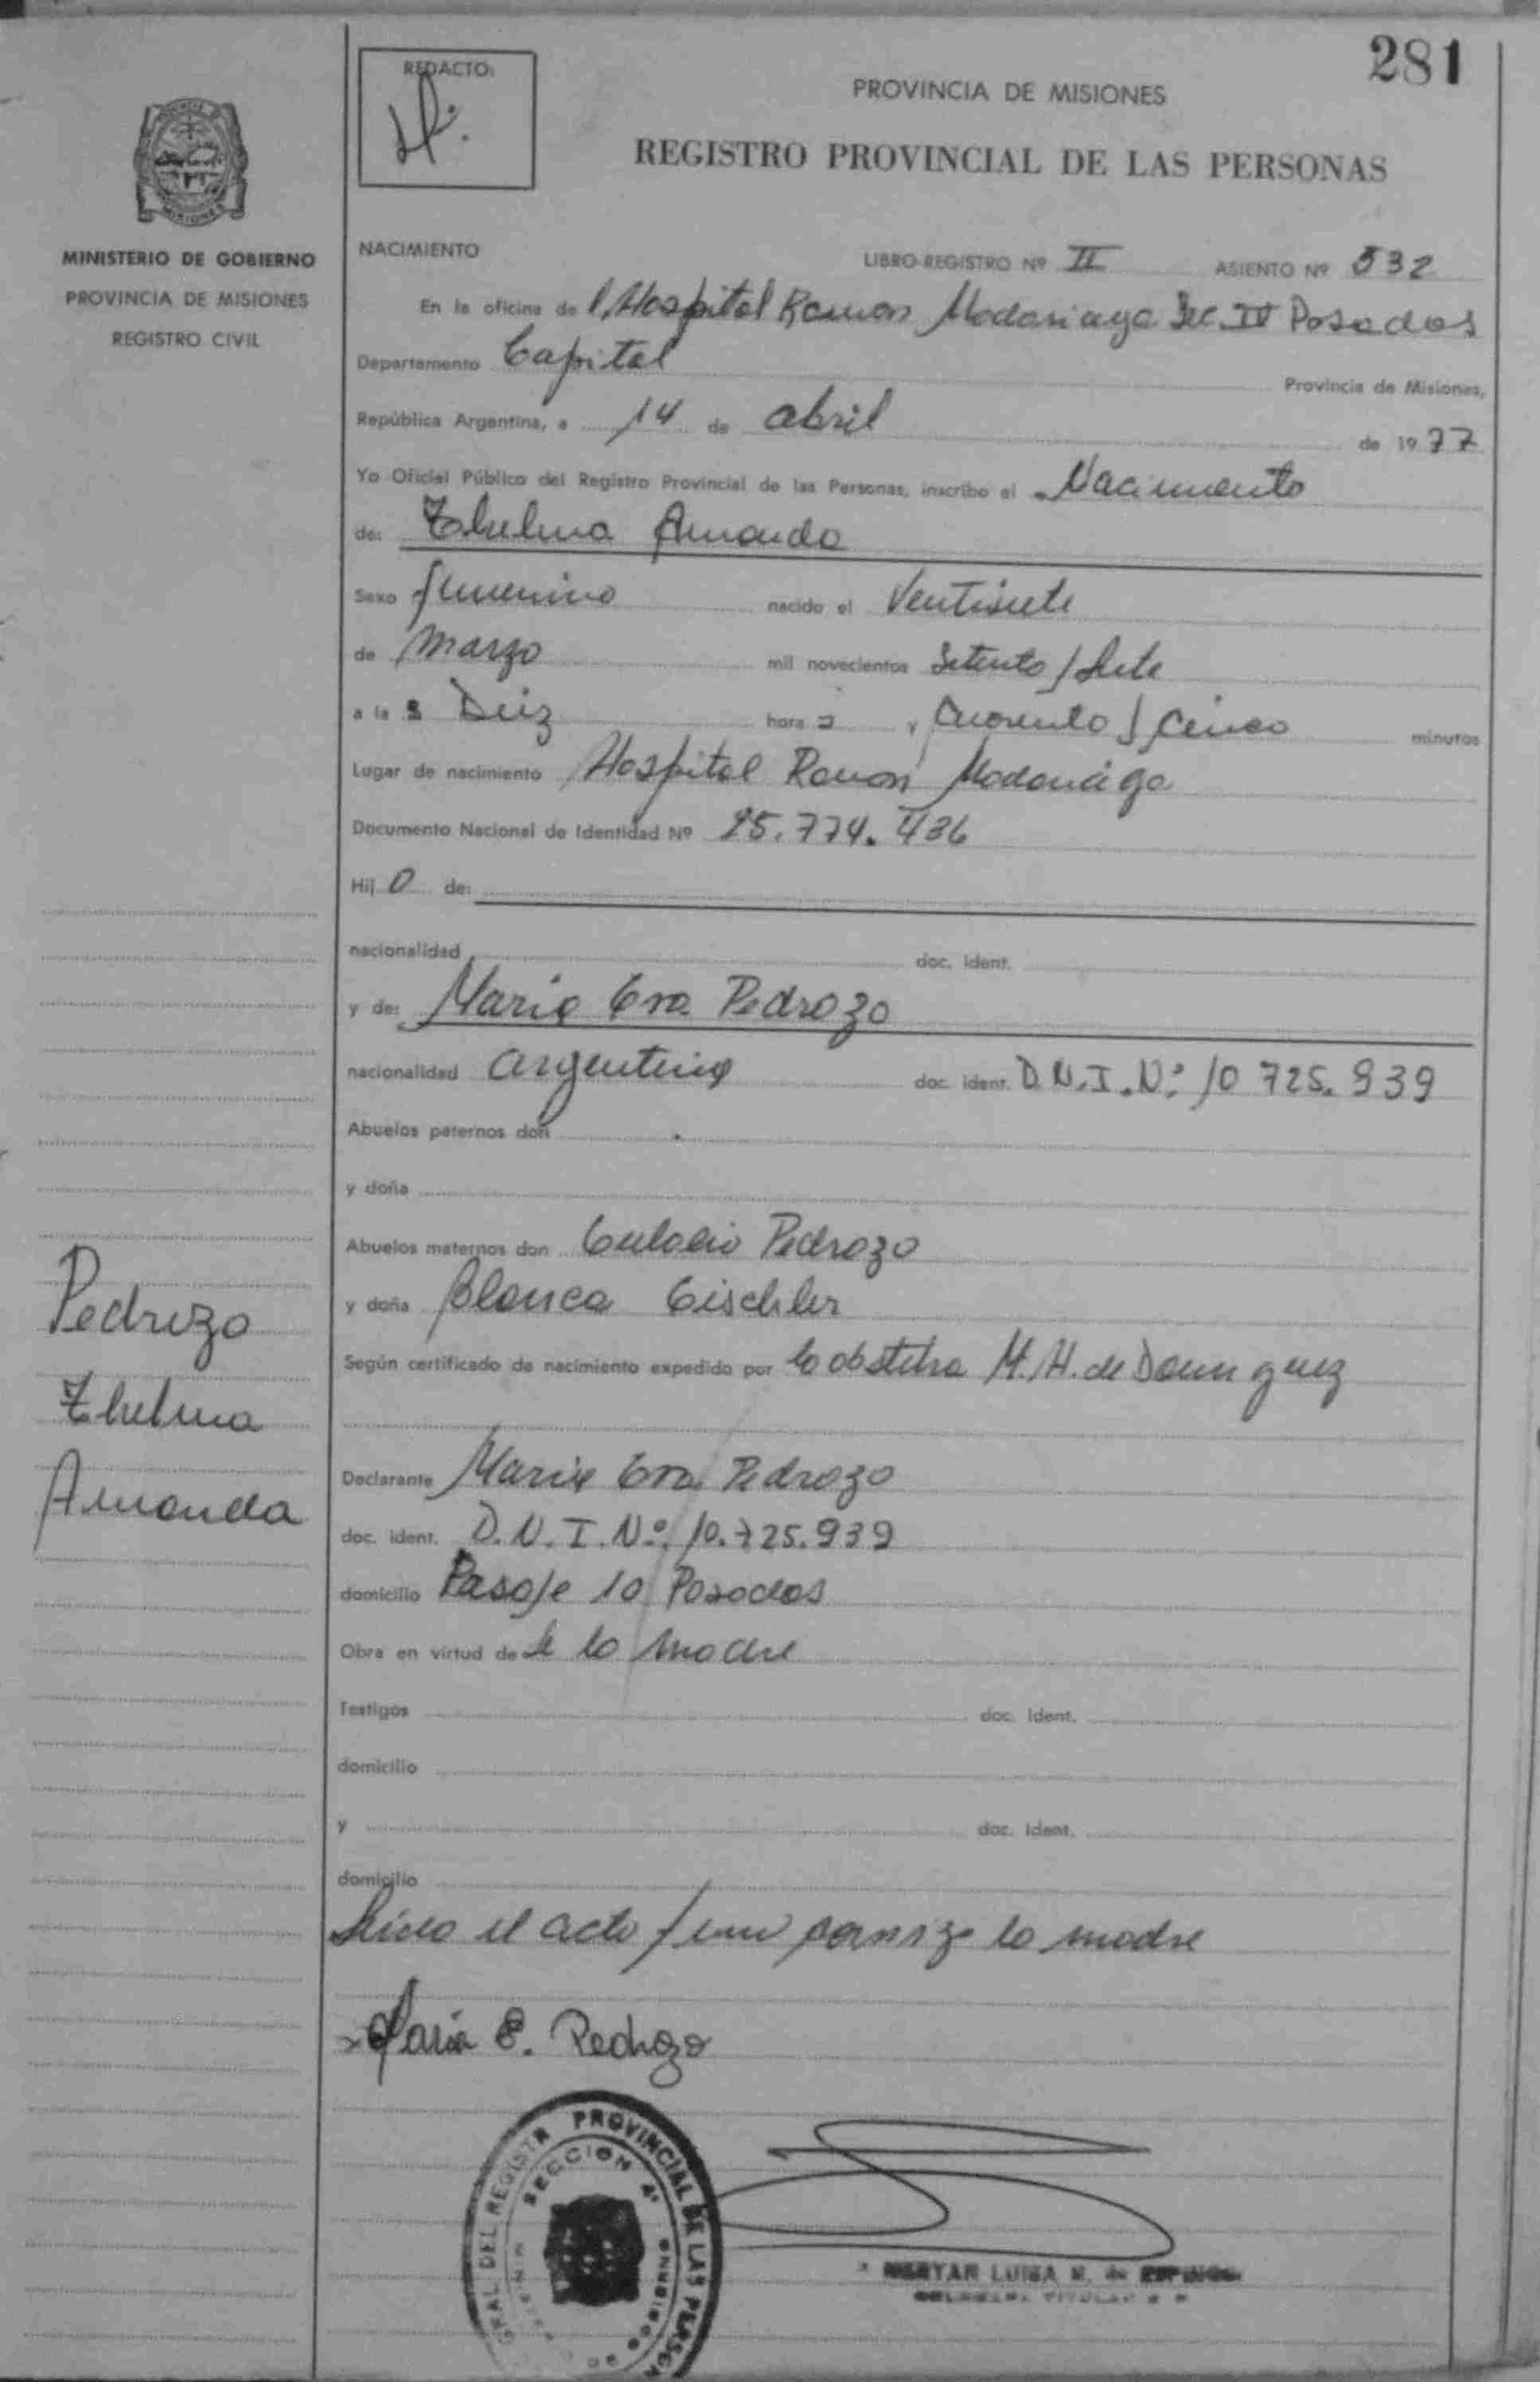 281
REDACTO:
PROVINCIA DE MISIONES
REGISTRO PROVINCIAL DE LAS PERSONAS
MINISTERIO DE GOBIERNO
PROVINCIA DE MISIONES
REGISTRO CIVIL
NACIMIENTO LIBRO-REGISTRO Nº II ASIENTO Nº 532
En la oficina de l Hospital Ramon Madariaga Sec. IV Posadas
Departamento Capital Provincia de Misiones,
República Argentina, a 14 de abril de 1977
Yo Oficial Público del Registro Provincial de las Personas, inscribo el Nacimiento
de: Thelma Amanda
Sexo femenino nacido el Ventisiete
de Marzo mil novecientos Setenta y Siete
a las Deiz horas y Cuarenta y Cinco minutos
Lugar de nacimiento Hospital Ramon Madariaga
Documento Nacional de Identidad Nº 25.774.436
Hij a de:
nacionalidad doc. ident.
y de: Maria Eva Pedrozo
nacionalidad argentina doc. ident. D.N.I.Nº 10 725.939
Abuelos paternos don
y doña
Abuelos maternos don Eulalio Pedrozo
y doña Blanca Eischler
Según certificado de nacimiento expedido por la obstetra M.H. de Dominguez
Declarante Maria Eva Pedrozo
doc. ident. D.N.I.Nº 10.725.939
domicilio Pasaje 10 Posadas
Obra en virtud de de la madre
Testigos doc. ident.
domicilio
y doc. ident.
domicilio
Leida el acta firma la madre
Maria E. Pedrozo
Pedrozo
Thelma
Amanda
GRAL DEL REGISTR PROVINCIAL DE LAS PERSON
SECCION 4ª
LUISA